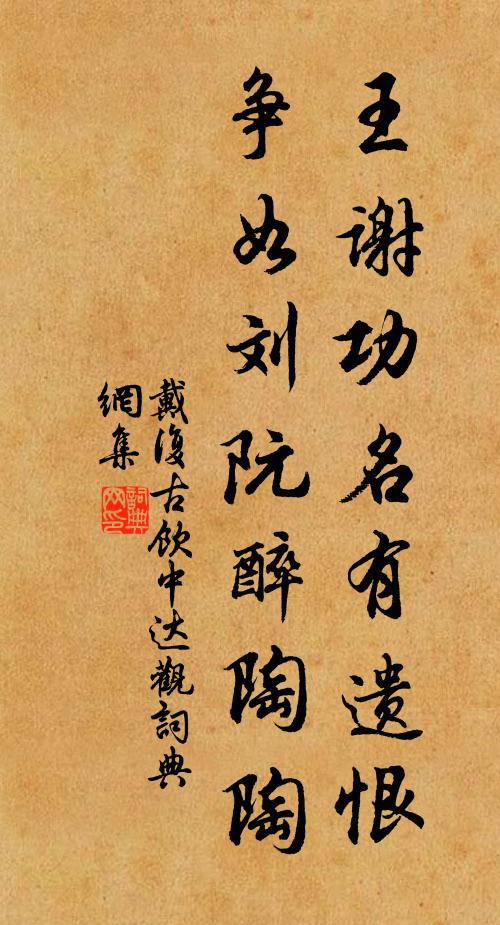 王谢功名有遗恨
争如刘阮醉陶陶
戴復古飲中达觀詞典
網集
詞典网印